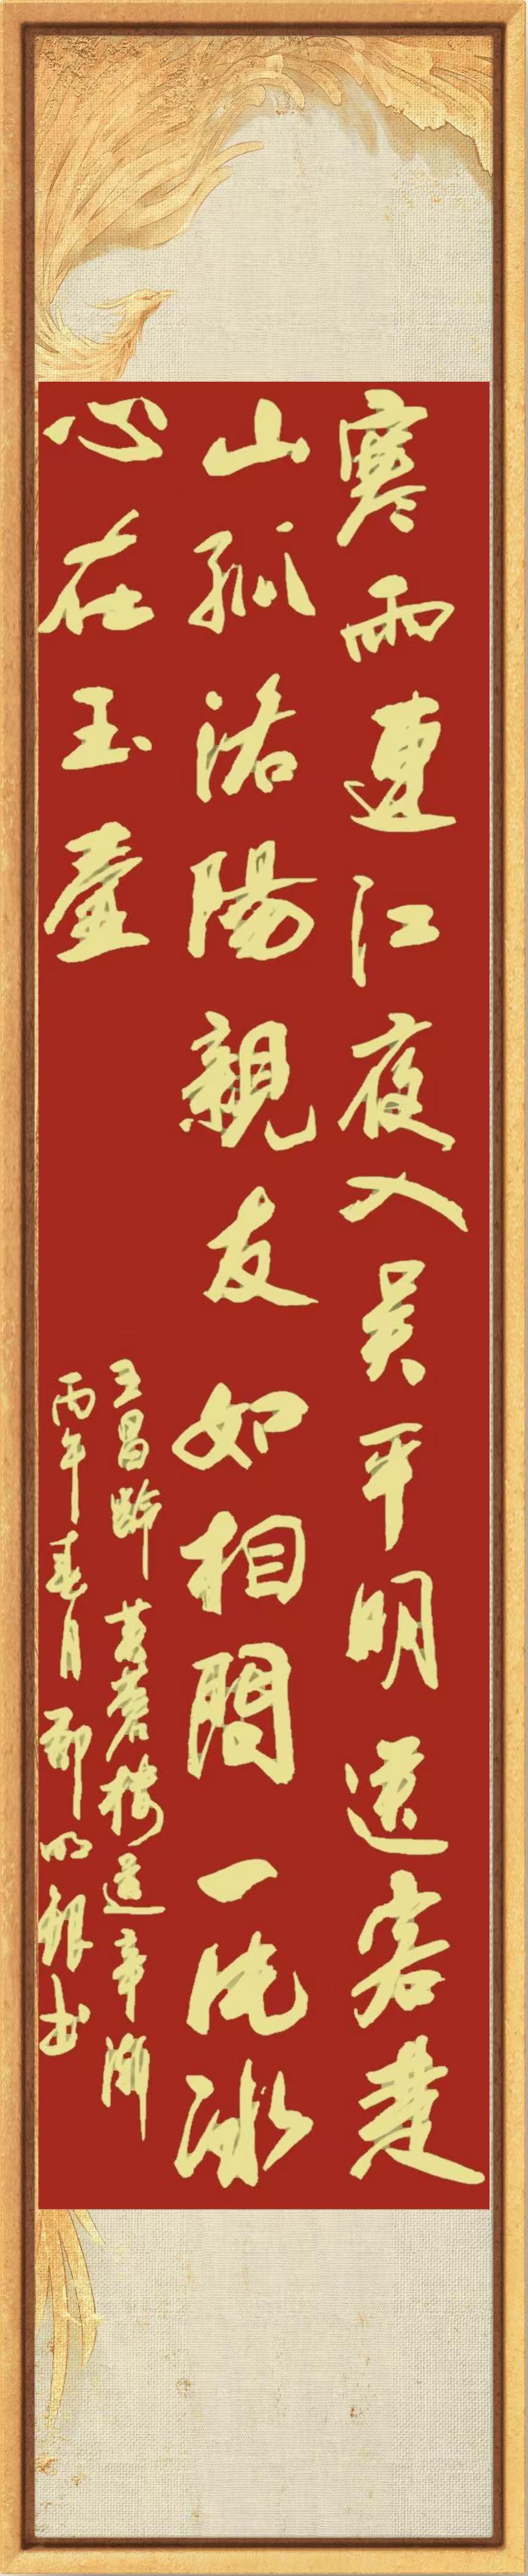 寒雨連江夜入吴平明送客楚
山孤洛陽親友如相問一片冰
心在玉壺
王昌齡芙蓉樓送辛漸
丙午春月郭明銀書